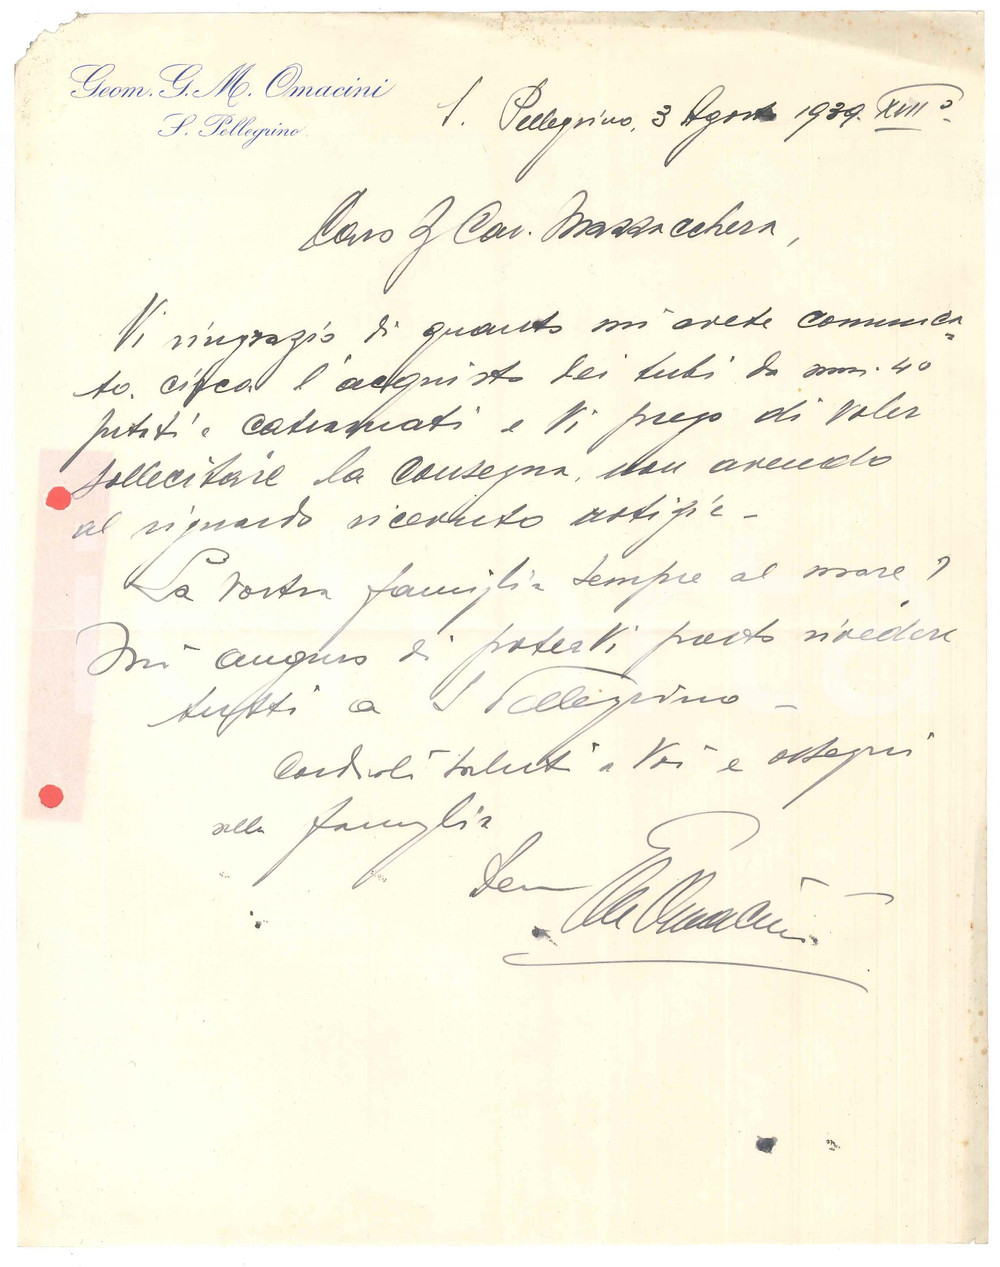 Geom. G. M. Omacini
S. Pellegrino
S. Pellegrino, 3 Agosto 1939. XVII°
Caro Cav. Mazzacchera,
Vi ringrazio di quanto mi avete comunica-
to, circa l'acquisto dei tubi da mm. 40
e catramati e Vi prego di voler
sollecitare la consegna, non avendo
al riguardo ricevuto notizie -
La Vostra famiglia sempre al mare?
Mi auguro di poterVi presto rivedere
tutti a S Pellegrino -
Cordiali saluti a Voi e ossequi
alla famiglia
Dev
GM Omacini